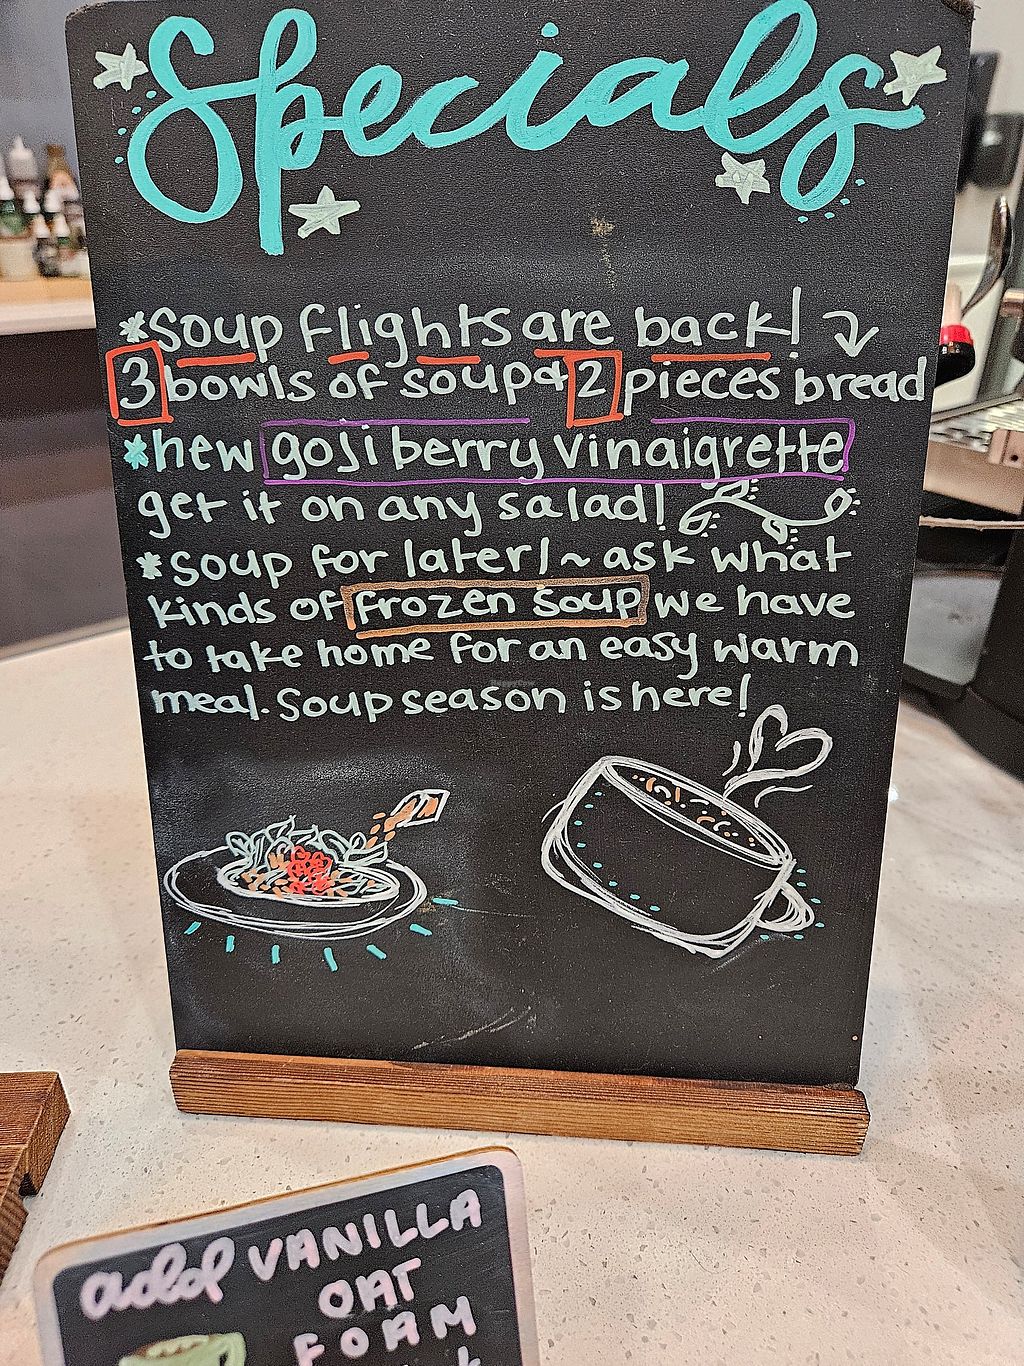 Specials
*Soup flights are back!
3 bowls of soup & 2 pieces bread
*new goji berry vinaigrette
get it on any salad!
*soup for later! ~ ask what
kinds of frozen soup we have
to take home for an easy warm
meal. Soup season is here!
add VANILLA
OAT
FOAM